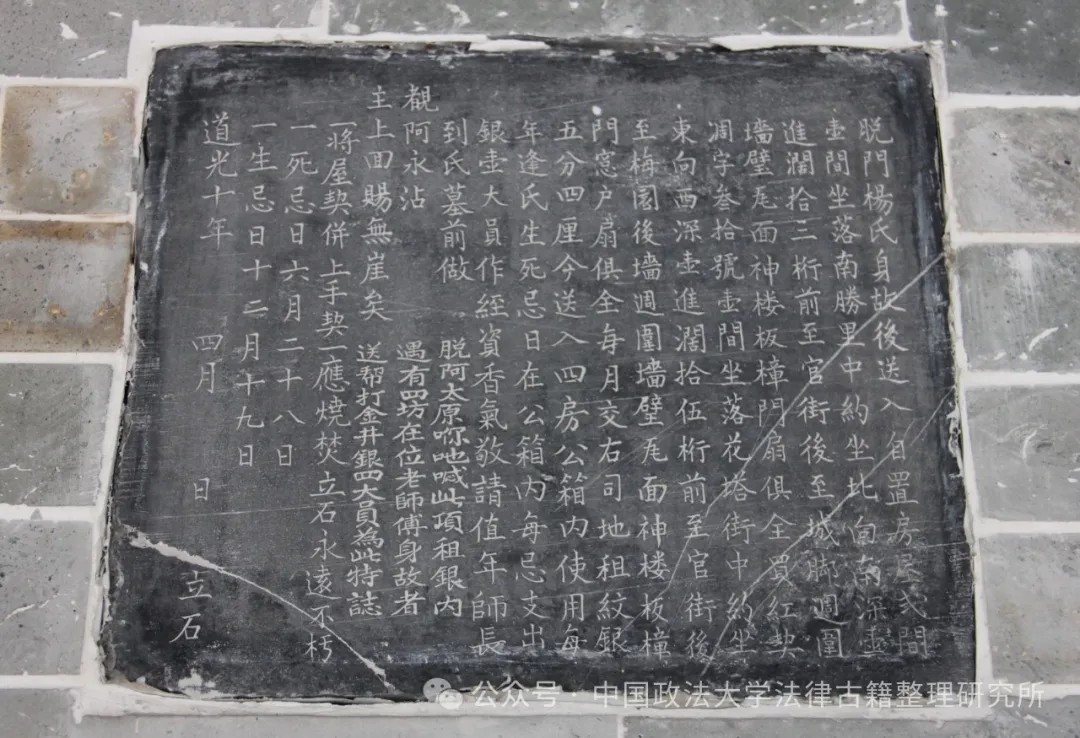 脱門楊氏身故後送入自置房屋弍間
壹間坐落南勝里中約坐北向南深壹
進濶拾三桁前至官街後至城脚週圍
墻壁瓦面神楼板樟門扇俱全買紅契
凋字叁拾號壹間坐落花塔街中約坐
東向西深壹進濶拾伍桁前至官街後
至梅園後墻週圍墻壁瓦面神楼板樟
門窓户扇俱全每月交右司地租紋銀
五分四厘今送入四房公箱内使用每
年逢氏生死忌日在公箱内每忌支出
銀壹大員作經資香氣敬請值年師長
到氏墓前做
觀阿永沾
主上面賜無崖矣
脱阿太原吩咃喊此項租銀内
遇有四坊在位老師傅身故者
送帮打金井銀四大員為此特誌
一將屋契併上手契一應燒焚立石永遠不朽
一死忌日六月二十八日
一生忌日十二月十九日
道光十年 四月 日 立石
公众号·中国政法大学法律古籍整理研究所